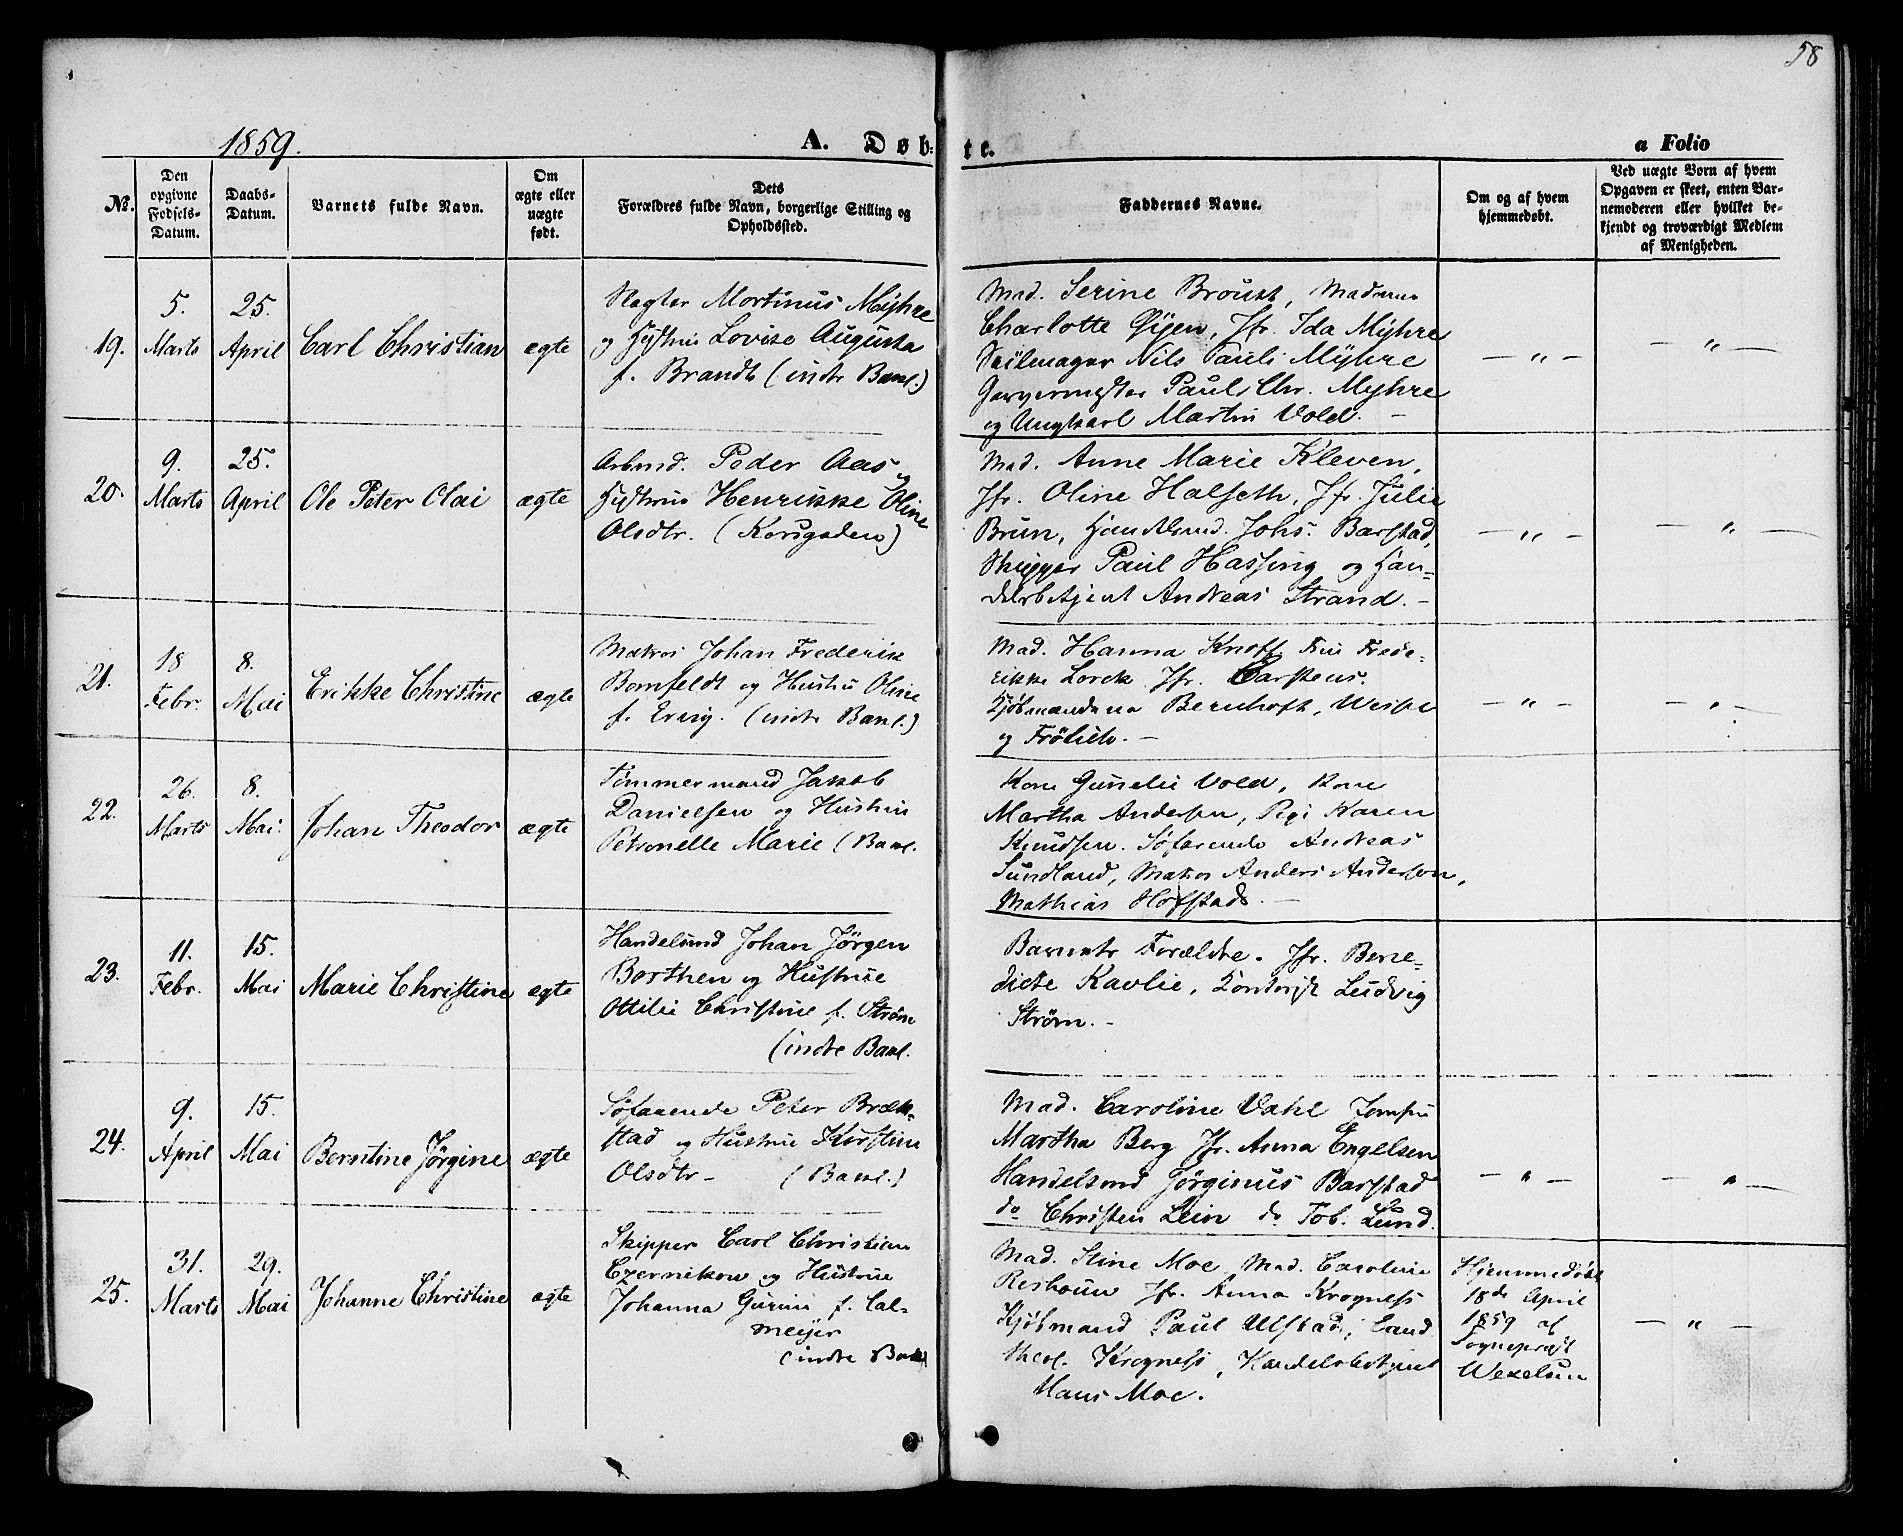 58
1859.
A. Døb-
te.
a Folio
No.
Den
opgivne
Fødsels-
Datum.
Daabs-
Datum.
Barnets fulde Navn.
Om
ægte eller
uægte
født.
Dets
Forældres fulde Navn, borgerlige Stilling og
Opholdssted.
Faddernes Navne.
Om og af hvem
hjemmedøbt.
Ved uægte Børn af hvem
Opgaven er skeet, enten Bar-
nemoderen eller hvilket be-
kjendt og troværdigt Medlem
af Menigheden.
19.
5.
Marts
25.
April
Carl Christian
ægte
Slagter Mortinus Myhre
og Hustru Lovise Augusta
f. Brandt (indre Bakl.)
Mad. Serine Broust, Madame
Charlotte Øyen, Jfr. Ida Myhre
Seilmager Nils Pauli Myhre
Garvermester Paul Chr. Myhre
og Ungkarl Martin Vold. -
- " -
- " -
20.
9.
Marts
25.
April
Ole Peter Olai
ægte
Arbmd. Peder Aas og
Hustrue Henrikke Oline
Olsdtr. (Korsgaden)
Mad. Anne Marie Kleven,
Jfr. Oline Halseth, Jfr. Julie
Brun, Handlsmd. Johs. Barstad,
Skipper Paul Hassing og Han-
delsbetjent Andreas Strand. -
- " -
- " -
21.
18
Febr.
8.
Mai
Erikke Christine
ægte
Matros Johan Frederik
Bomfeldt og Hustru Oline
f. Ervig. (indre Bakl.)
Mad. Hanna Knoff Fru Frede-
rikke Lorck Jfr. Carstens.
Kjøbmændene Bernhoft, Weise
og Frölich. -
- " -
- " -
22.
26.
Marts
8.
Mai.
Johan Theodor
ægte
Tømmermand Jakob
Danielsen og Hustru
Petronelle Marie (Bakl.
Kone Gunelie Vold, Kone
Martha Andersen, Pige Karen
Knudsen. Søfarende Andreas
Sundland, Matros Anders Andersen,
Mathias Hofstad. -
23.
11.
Febr.
15.
Mai
Marie Christine
ægte
Handelsmd Johan Jørgen
Borthen og Hustrue
Ottilie Christine f. Strøm
(indre Bakl.
Barnets Forældre. Jfr. Bene-
dicte Kavlie, Kontorist Ludvig
Strøm. -
24.
9.
April
15.
Mai
Berntine Jørgine
ægte
Søfarende Peter Bræk-
stad og Hustrue Kirstine
Olsdtr - (Bakl.)
Mad. Caroline Vahl Jomfru
Martha Berg Jfr. Anna Engelsen
Handelsmd Jørginus Barstad
do Christen Lein do Tob. Lund.
- " -
- " -
25.
31.
Marts
29.
Mai
Johanne Christine
ægte
Skipper Carl Christian
Czernikow og Hustrue
Johanna Gurine f. Cal-
meijer
(indre Bakl
Mad. Stine Moe, Mad. Caroline
Reshoun Jfr. Anna Krogness
Kjøbmand Paul Ulstad, Cand
theol. Krogness, Handelsbetjent
Hans Moe.
Hjemmedøbt
18de April
1859 af
Sogneprest
Wexelsen
- " -